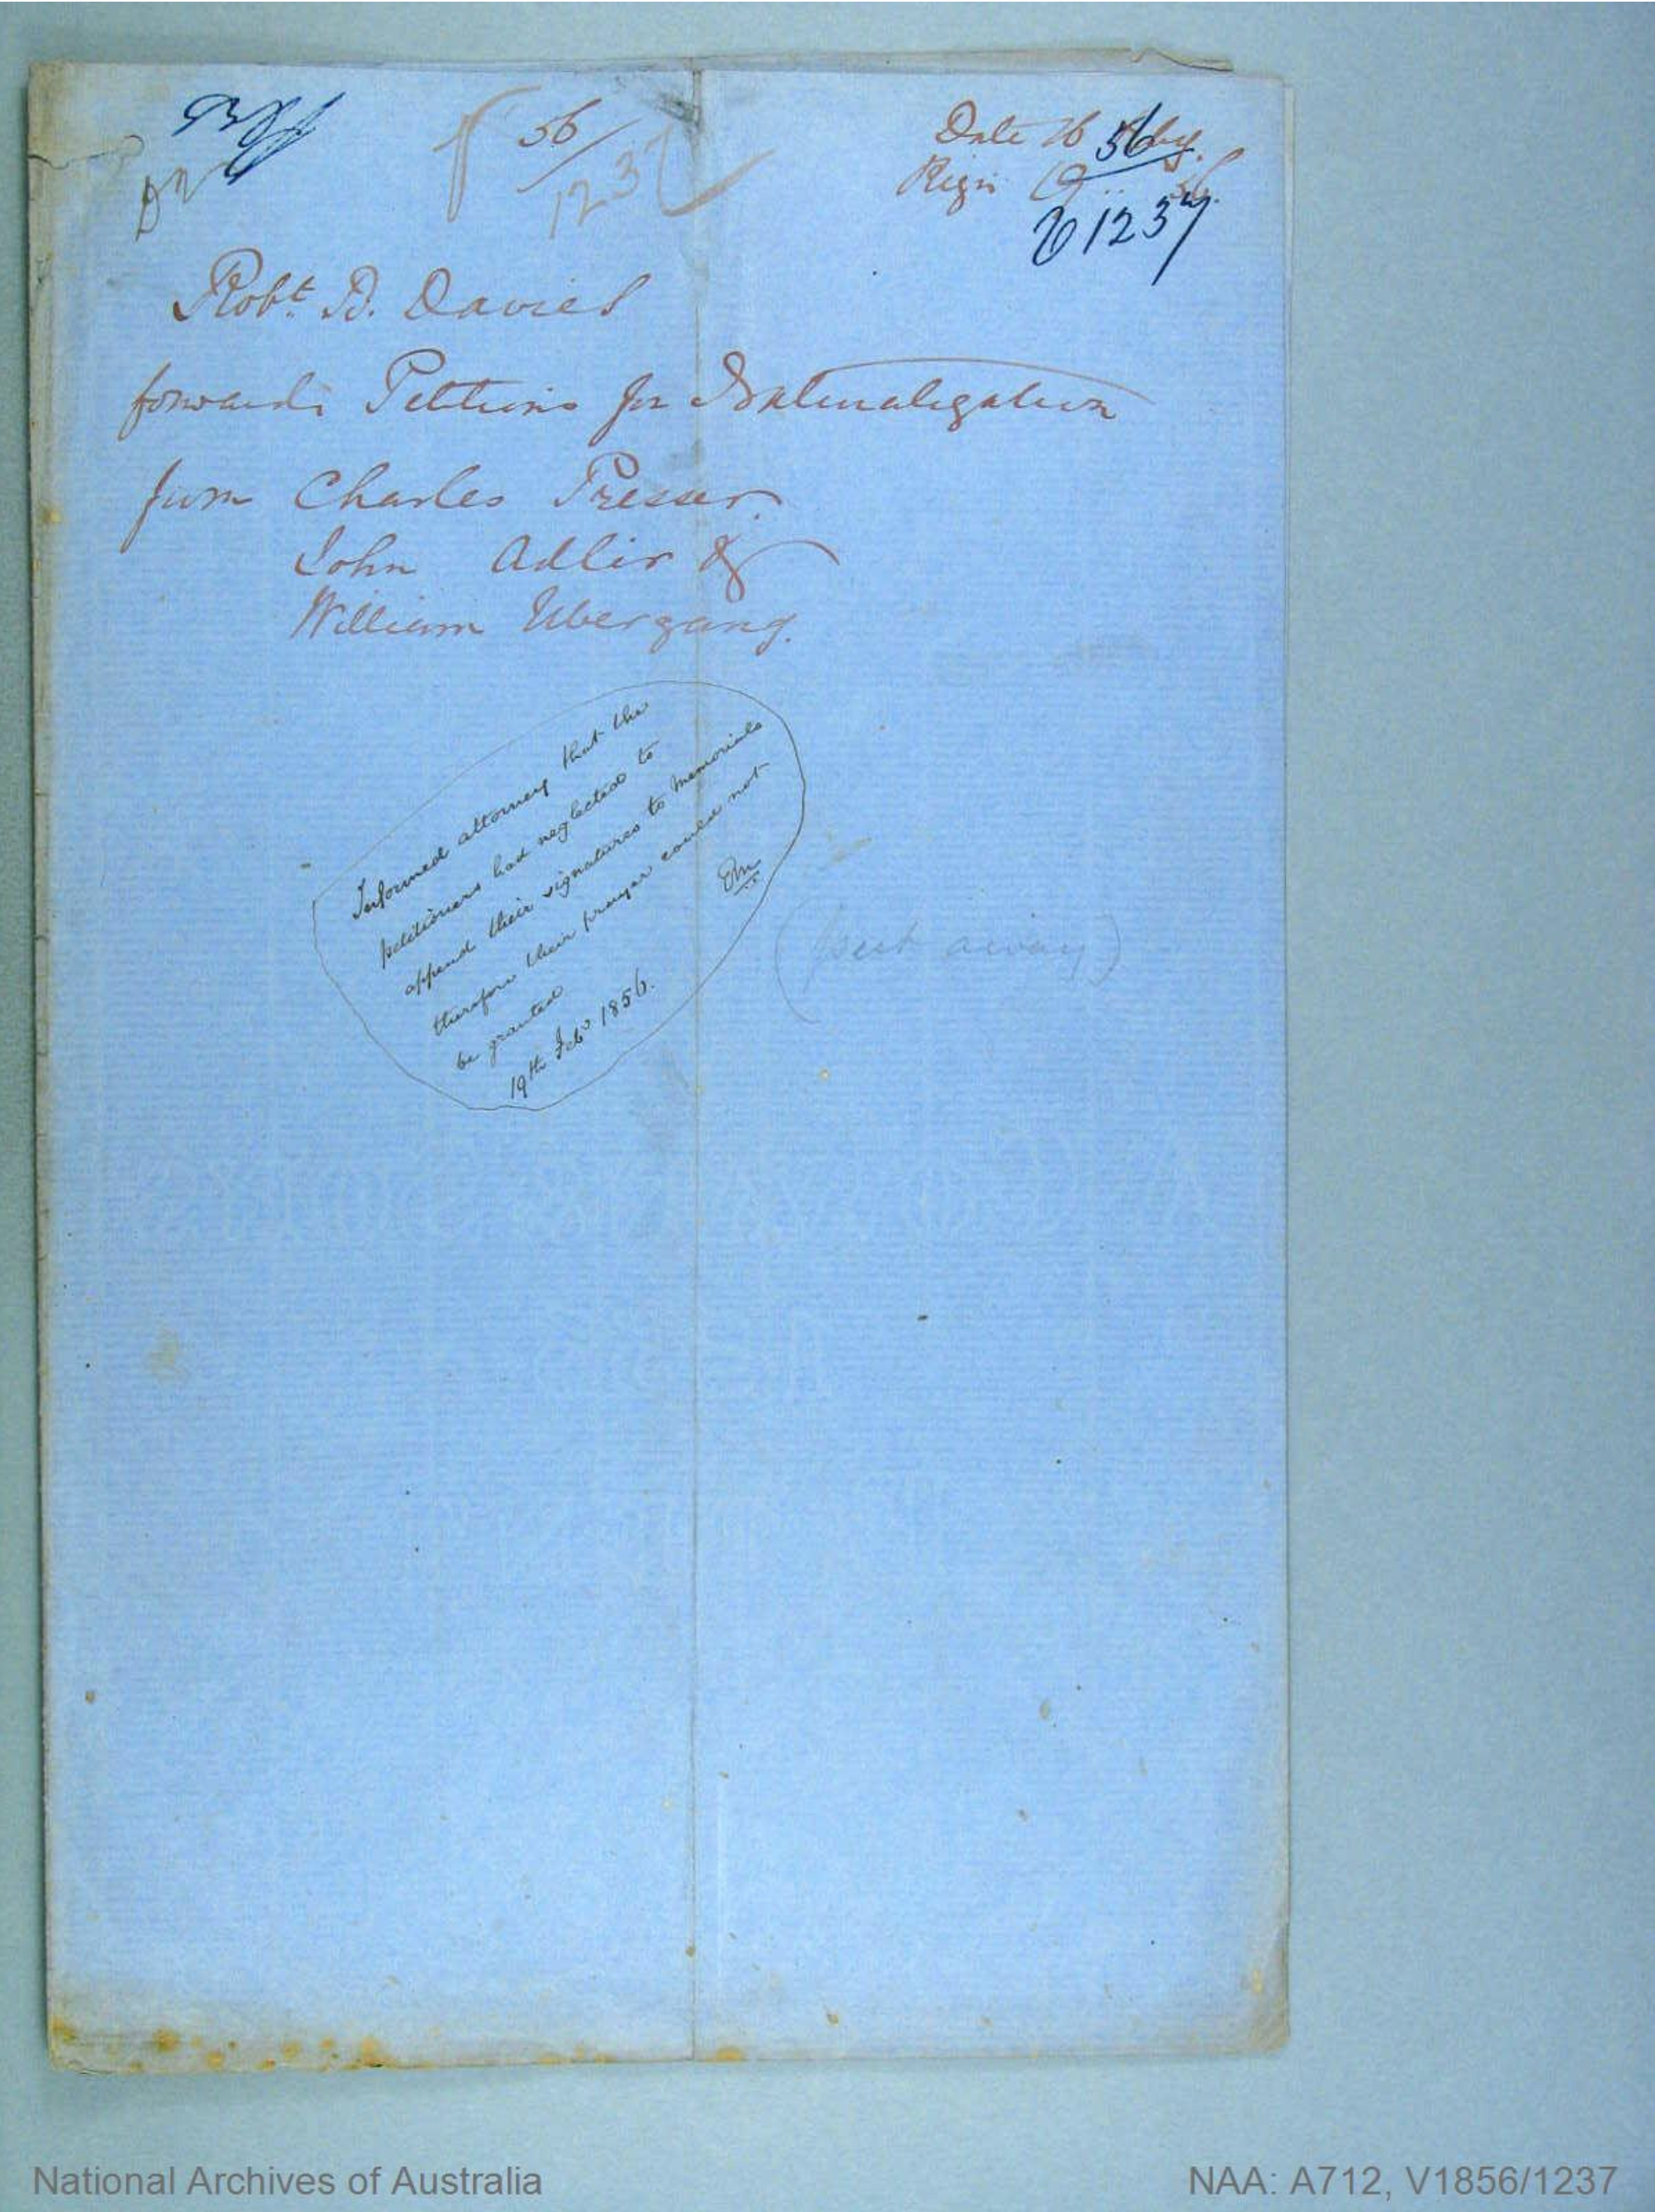 56/1237
Date 16
56
Regn 19
V 1237
Robt. D. Davies
forwards Petitions for Naturalization
from Charles Presser.
John Adler &
William Ubergang.
Informed attorney that the
petitioners had neglected to
append their signatures to memorials
therefore their prayer could not
be granted
19th Feby 1856.
(put away)
National Archives of Australia
NAA: A712, V1856/1237